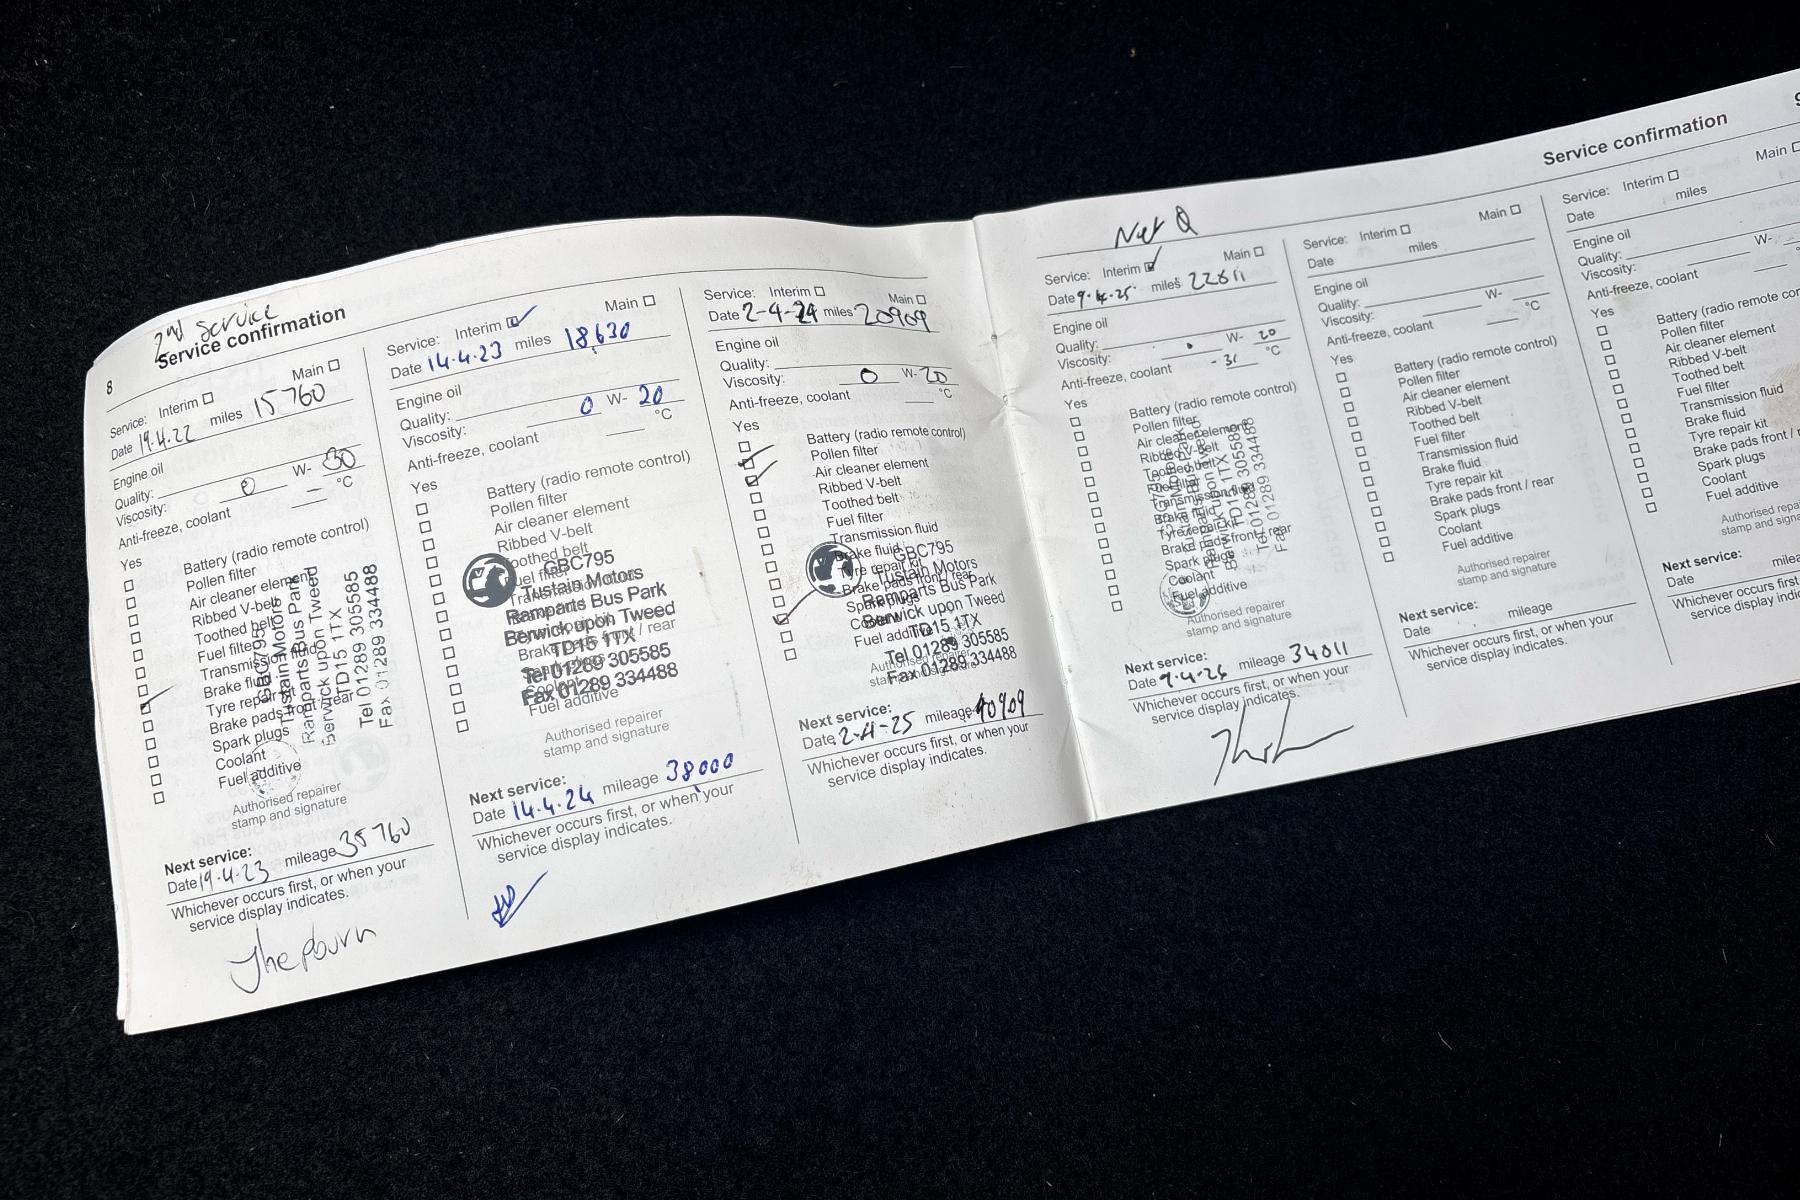 8
2nd Service
Service confirmation
Service: Interim Main
Date 19.4.22 miles 15760
Engine oil
Quality:
Viscosity: 0 W- 30
Anti-freeze, coolant °C
Yes
Battery (radio remote control)
Pollen filter
Air cleaner element
Ribbed V-belt
Toothed belt
Fuel filter
Transmission fluid
Brake fluid
Tyre repair kit
Brake pads front / rear
Spark plugs
Coolant
Fuel additive
GBC795
Tustain Motors
Ramparts Bus Park
Berwick upon Tweed
TD15 1TX
Tel 01289 305585
Fax 01289 334488
Authorised repairer
stamp and signature
Next service:
Date 19.4.23 mileage 35760
Whichever occurs first, or when your
service display indicates.
Service: Interim Main
Date 14.4.23 miles 18,630
Engine oil
Quality:
Viscosity: 0 W- 20
Anti-freeze, coolant °C
Yes
Battery (radio remote control)
Pollen filter
Air cleaner element
Ribbed V-belt
Toothed belt
Fuel filter
Transmission fluid
Brake pads front / rear
Coolant
Fuel additive
GBC795
Tustain Motors
Ramparts Bus Park
Berwick upon Tweed
TD15 1TX
Tel 01289 305585
Fax 01289 334488
Authorised repairer
stamp and signature
Next service:
Date 14.4.24 mileage 38000
Whichever occurs first, or when your
service display indicates.
Service: Interim Main
Date 2-4-24 miles 20909
Engine oil
Quality:
Viscosity: 0 W- 20
Anti-freeze, coolant °C
Yes
Battery (radio remote control)
Pollen filter
Air cleaner element
Ribbed V-belt
Toothed belt
Fuel filter
Transmission fluid
Brake fluid
Tyre repair kit
Brake pads front / rear
Spark plugs
Coolant
Fuel additive
GBC795
Tustain Motors
Ramparts Bus Park
Berwick upon Tweed
TD15 1TX
Tel 01289 305585
Fax 01289 334488
Authorised repairer
stamp and signature
Next service:
Date 2-4-25 mileage 40909
Whichever occurs first, or when your
service display indicates.
Service confirmation
Service: Interim Main
Date 9.4.25 miles 22611
Engine oil
Quality:
Viscosity: 0 W- 20
Anti-freeze, coolant °C
Yes
Battery (radio remote control)
Pollen filter
Air cleaner element
Ribbed V-belt
Toothed belt
Fuel filter
Transmission fluid
Brake fluid
Tyre repair kit
Brake pads front / rear
Spark plugs
Coolant
Fuel additive
Berwick upon Tweed
TD15 1TX
Tel 01289 305585
Fax 01289 334488
Authorised repairer
stamp and signature
Next service:
Date 9.4.26 mileage
Whichever occurs first, or when your
service display indicates.
Service: Interim Main
Date miles
Engine oil
Quality:
Viscosity: W-
Anti-freeze, coolant °C
Yes
Battery (radio remote control)
Pollen filter
Air cleaner element
Ribbed V-belt
Toothed belt
Fuel filter
Transmission fluid
Brake fluid
Tyre repair kit
Brake pads front / rear
Spark plugs
Coolant
Fuel additive
Authorised repairer
stamp and signature
Next service:
Date mileage
Whichever occurs first, or when your
service display indicates.
Service: Interim Main
Date miles
Engine oil
Quality:
Viscosity: W-
Anti-freeze, coolant
Yes
Battery (radio remote
Pollen filter
Air cleaner element
Ribbed V-belt
Toothed belt
Fuel filter
Transmission fluid
Brake fluid
Tyre repair kit
Brake pads front /
Spark plugs
Coolant
Fuel additive
Authorised
stamp and
Next service:
Date
Whichever occurs first, or
service display